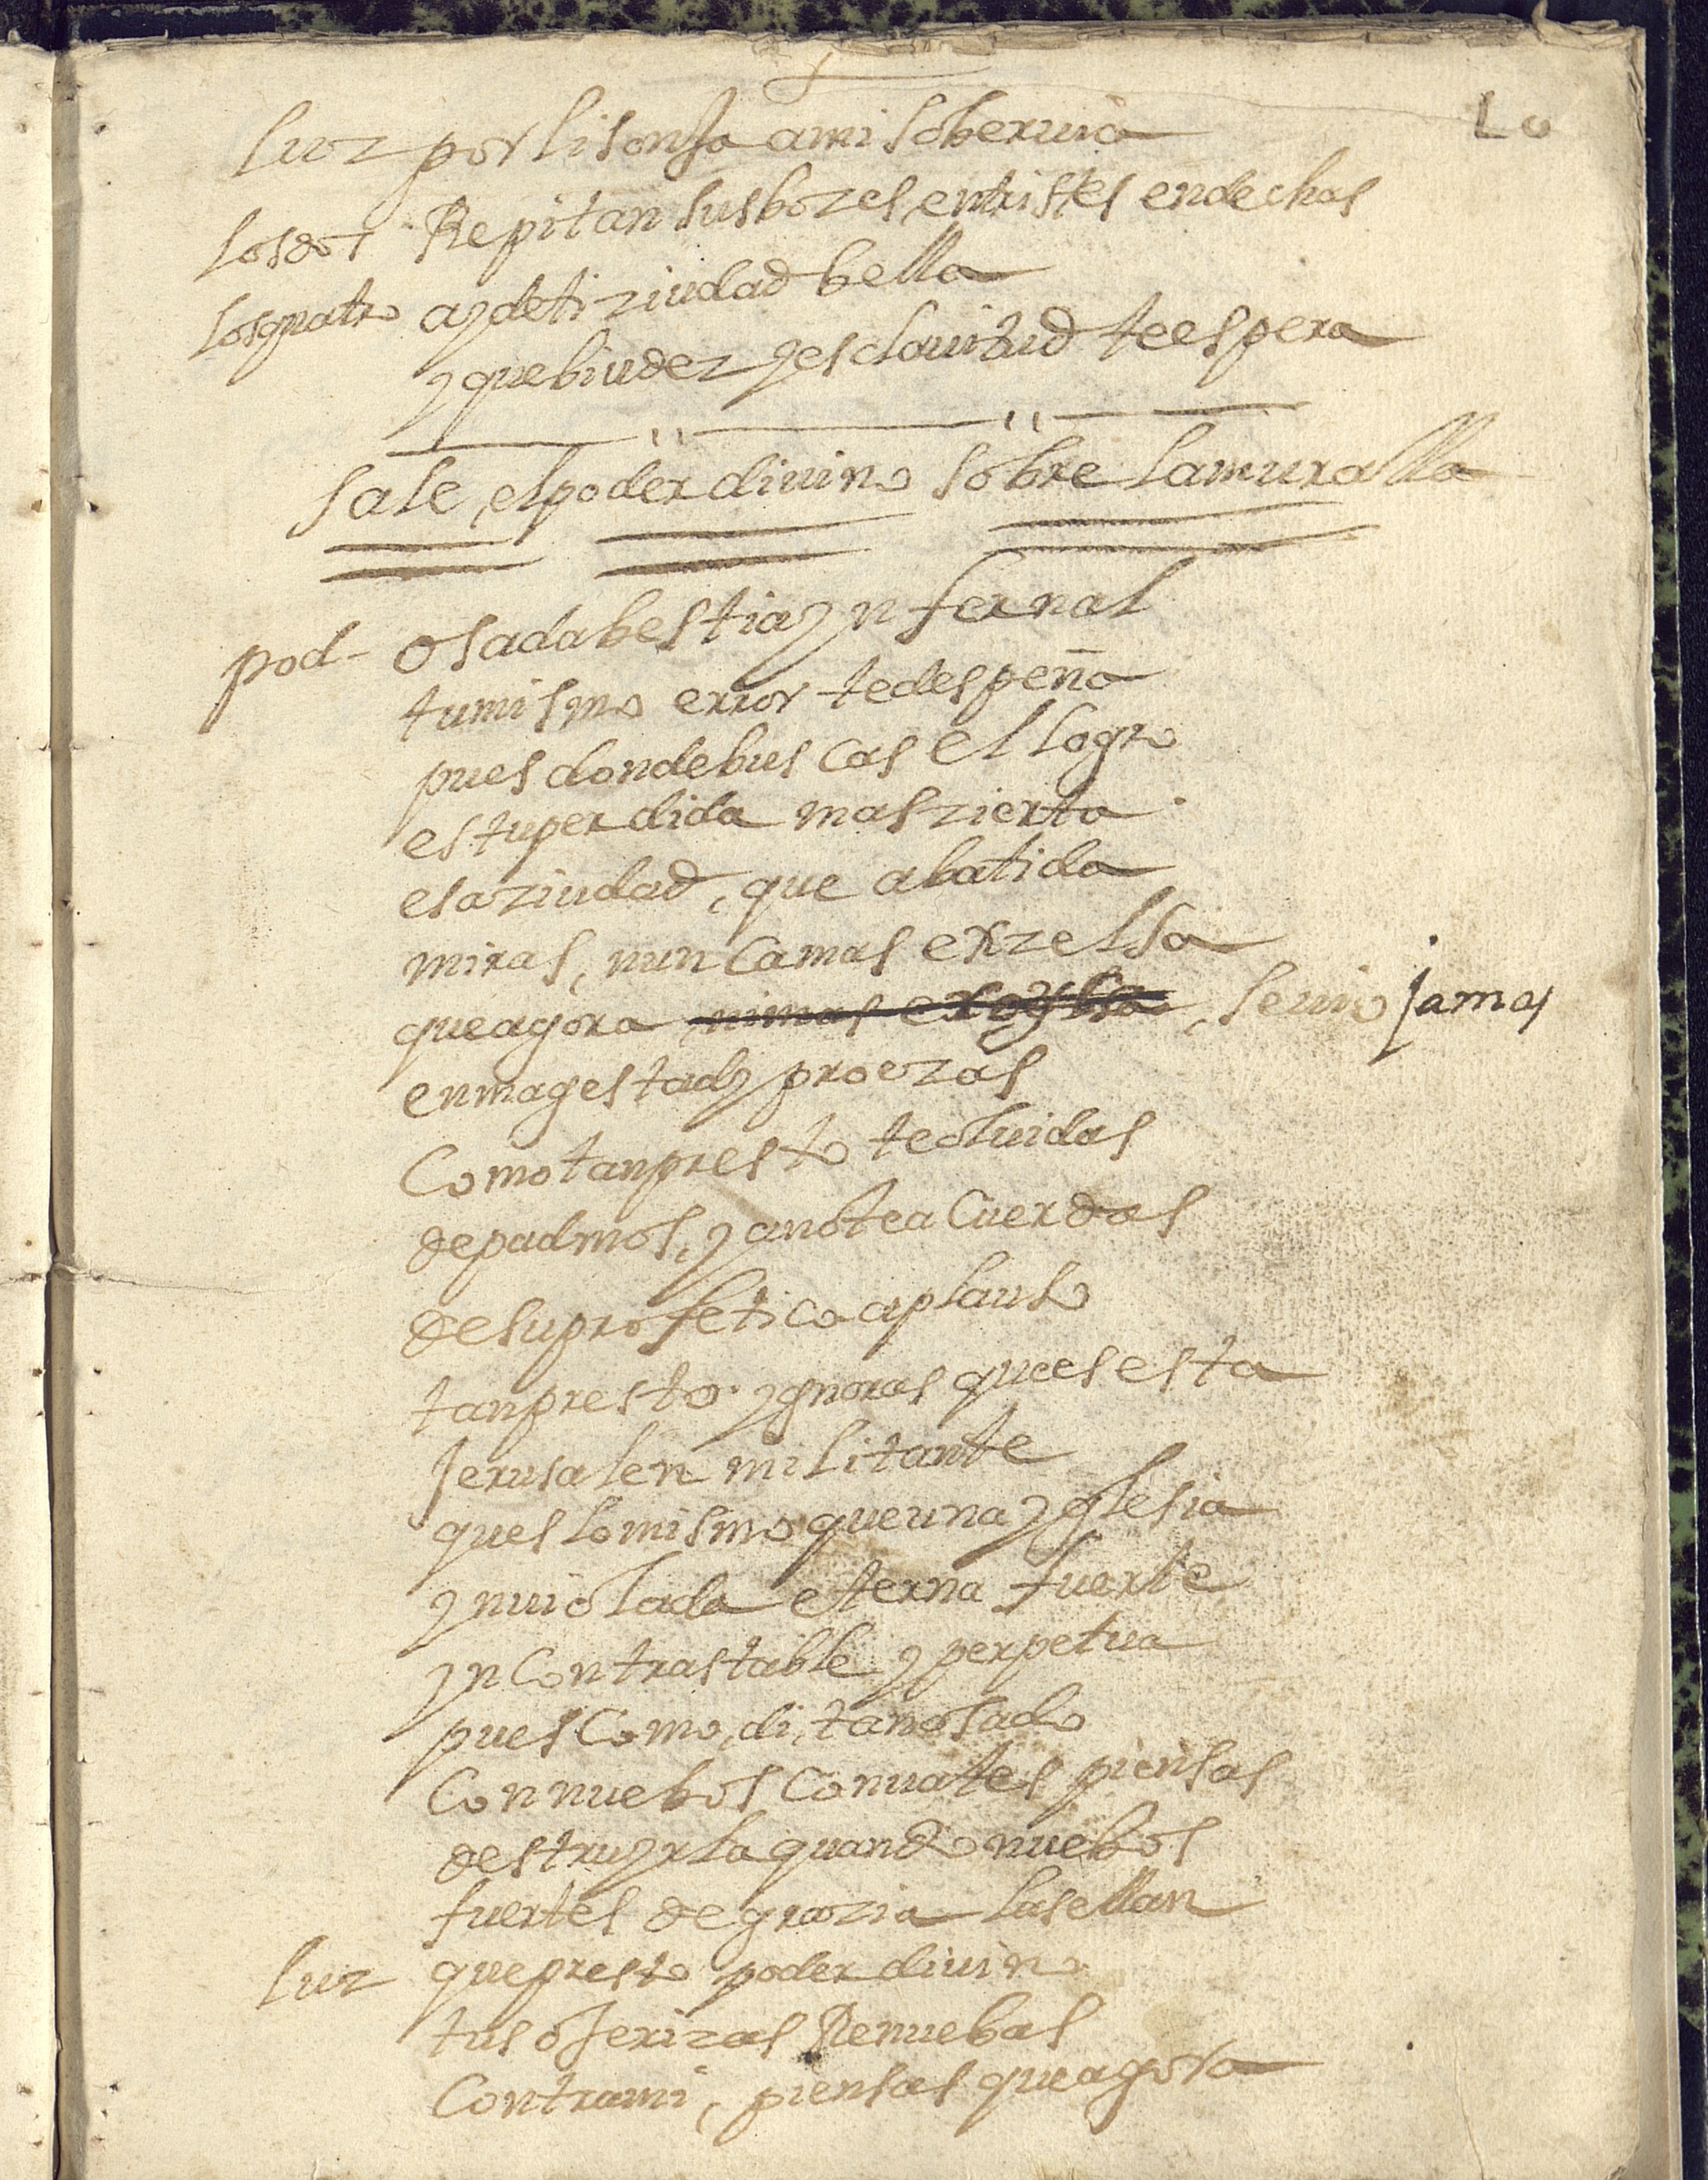 luz por lisonja a mi soberuia
los dos Repitan sus bozes en tristes endechas
los quatro ay de ti ziudad bella
y que biudez y esclauitud te espera
sale el poder diuino sobre la muralla
pod- osada bestia ynfernal
tu mismo error te despeña
pues donde buscas el logro
es tu perdida mas zierta
esa ziudad, que abatida
miras, nunca mas exzelsa
que agora nimas se uio jamas
en magestad y proezas
Como tan presto te oluidas
de padmos, y a no te aCuerdas
de su profetico aplauso
tan presto ygnoras que es esta
Jerusalen militante
ques lo mismo que una yglesia
ynuiolada eterna fuerte
ynContrastable y perpetua
pues Como, di, tan osado
Con nuebos Conuates piensas
destruyrla quando nuebos
fuertes de grazia la sellan
luz que presto poder diuino
tus ojerizas Renuebas
Contra mi, piensas que agora